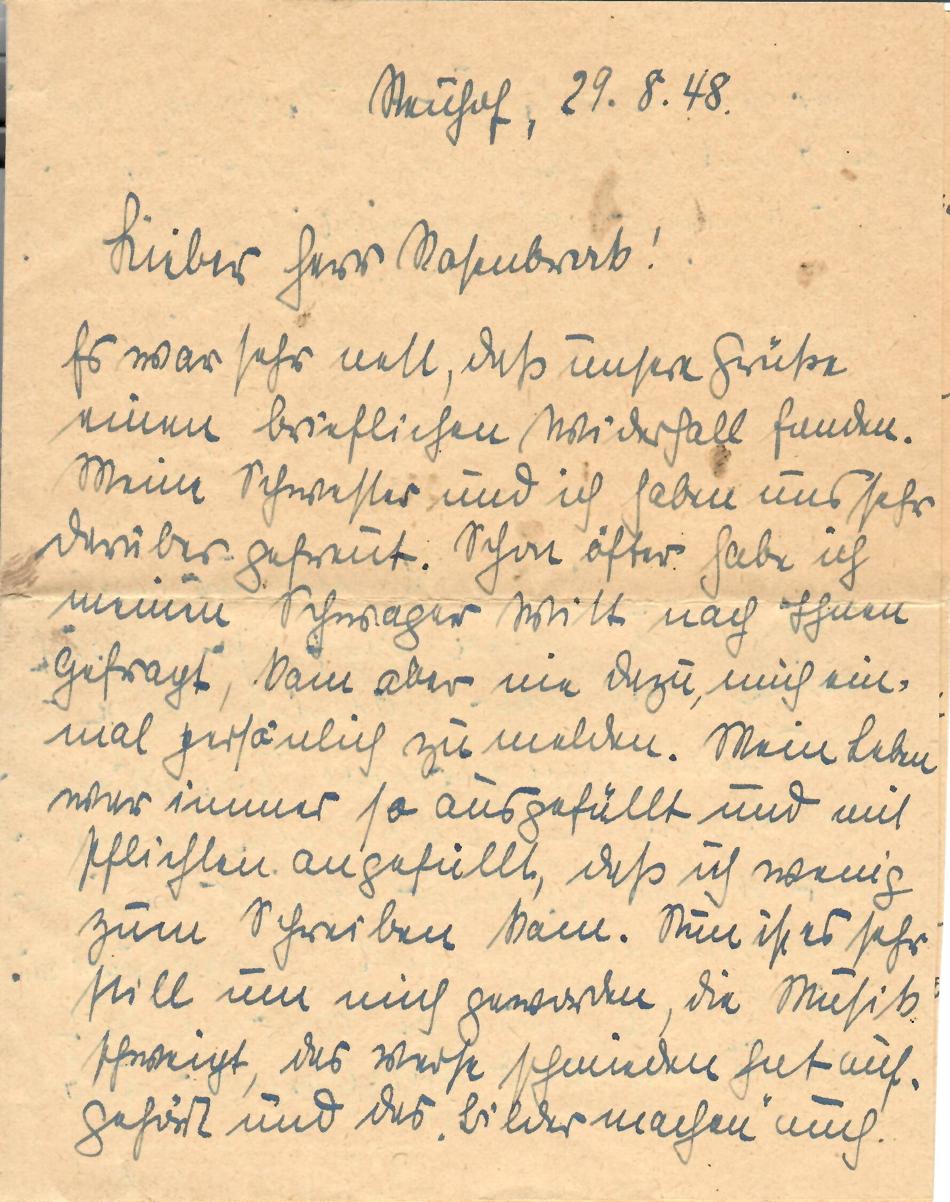 Neuhof, 29. 8. 48.
Lieber Herr Rosenbrak!
Es war sehr nett, daß unsere Grüße
einen brieflichen Widerhall fanden.
Meine Schwester und ich haben uns sehr
darüber gefreut. Schon öfter habe ich
meinen Schwager Witt nach Ihnen
gefragt, kam aber nie dazu, mich ein-
mal persönlich zu melden. Mein Leben
war immer so ausgefüllt und mit
Pflichten angefüllt, daß ich wenig
zum Schreiben kam. Nun ist es sehr
still um mich geworden, die Musik
schweigt, das Verse schmieden hat auf-
gehört und das „Bilder machen“ auch.